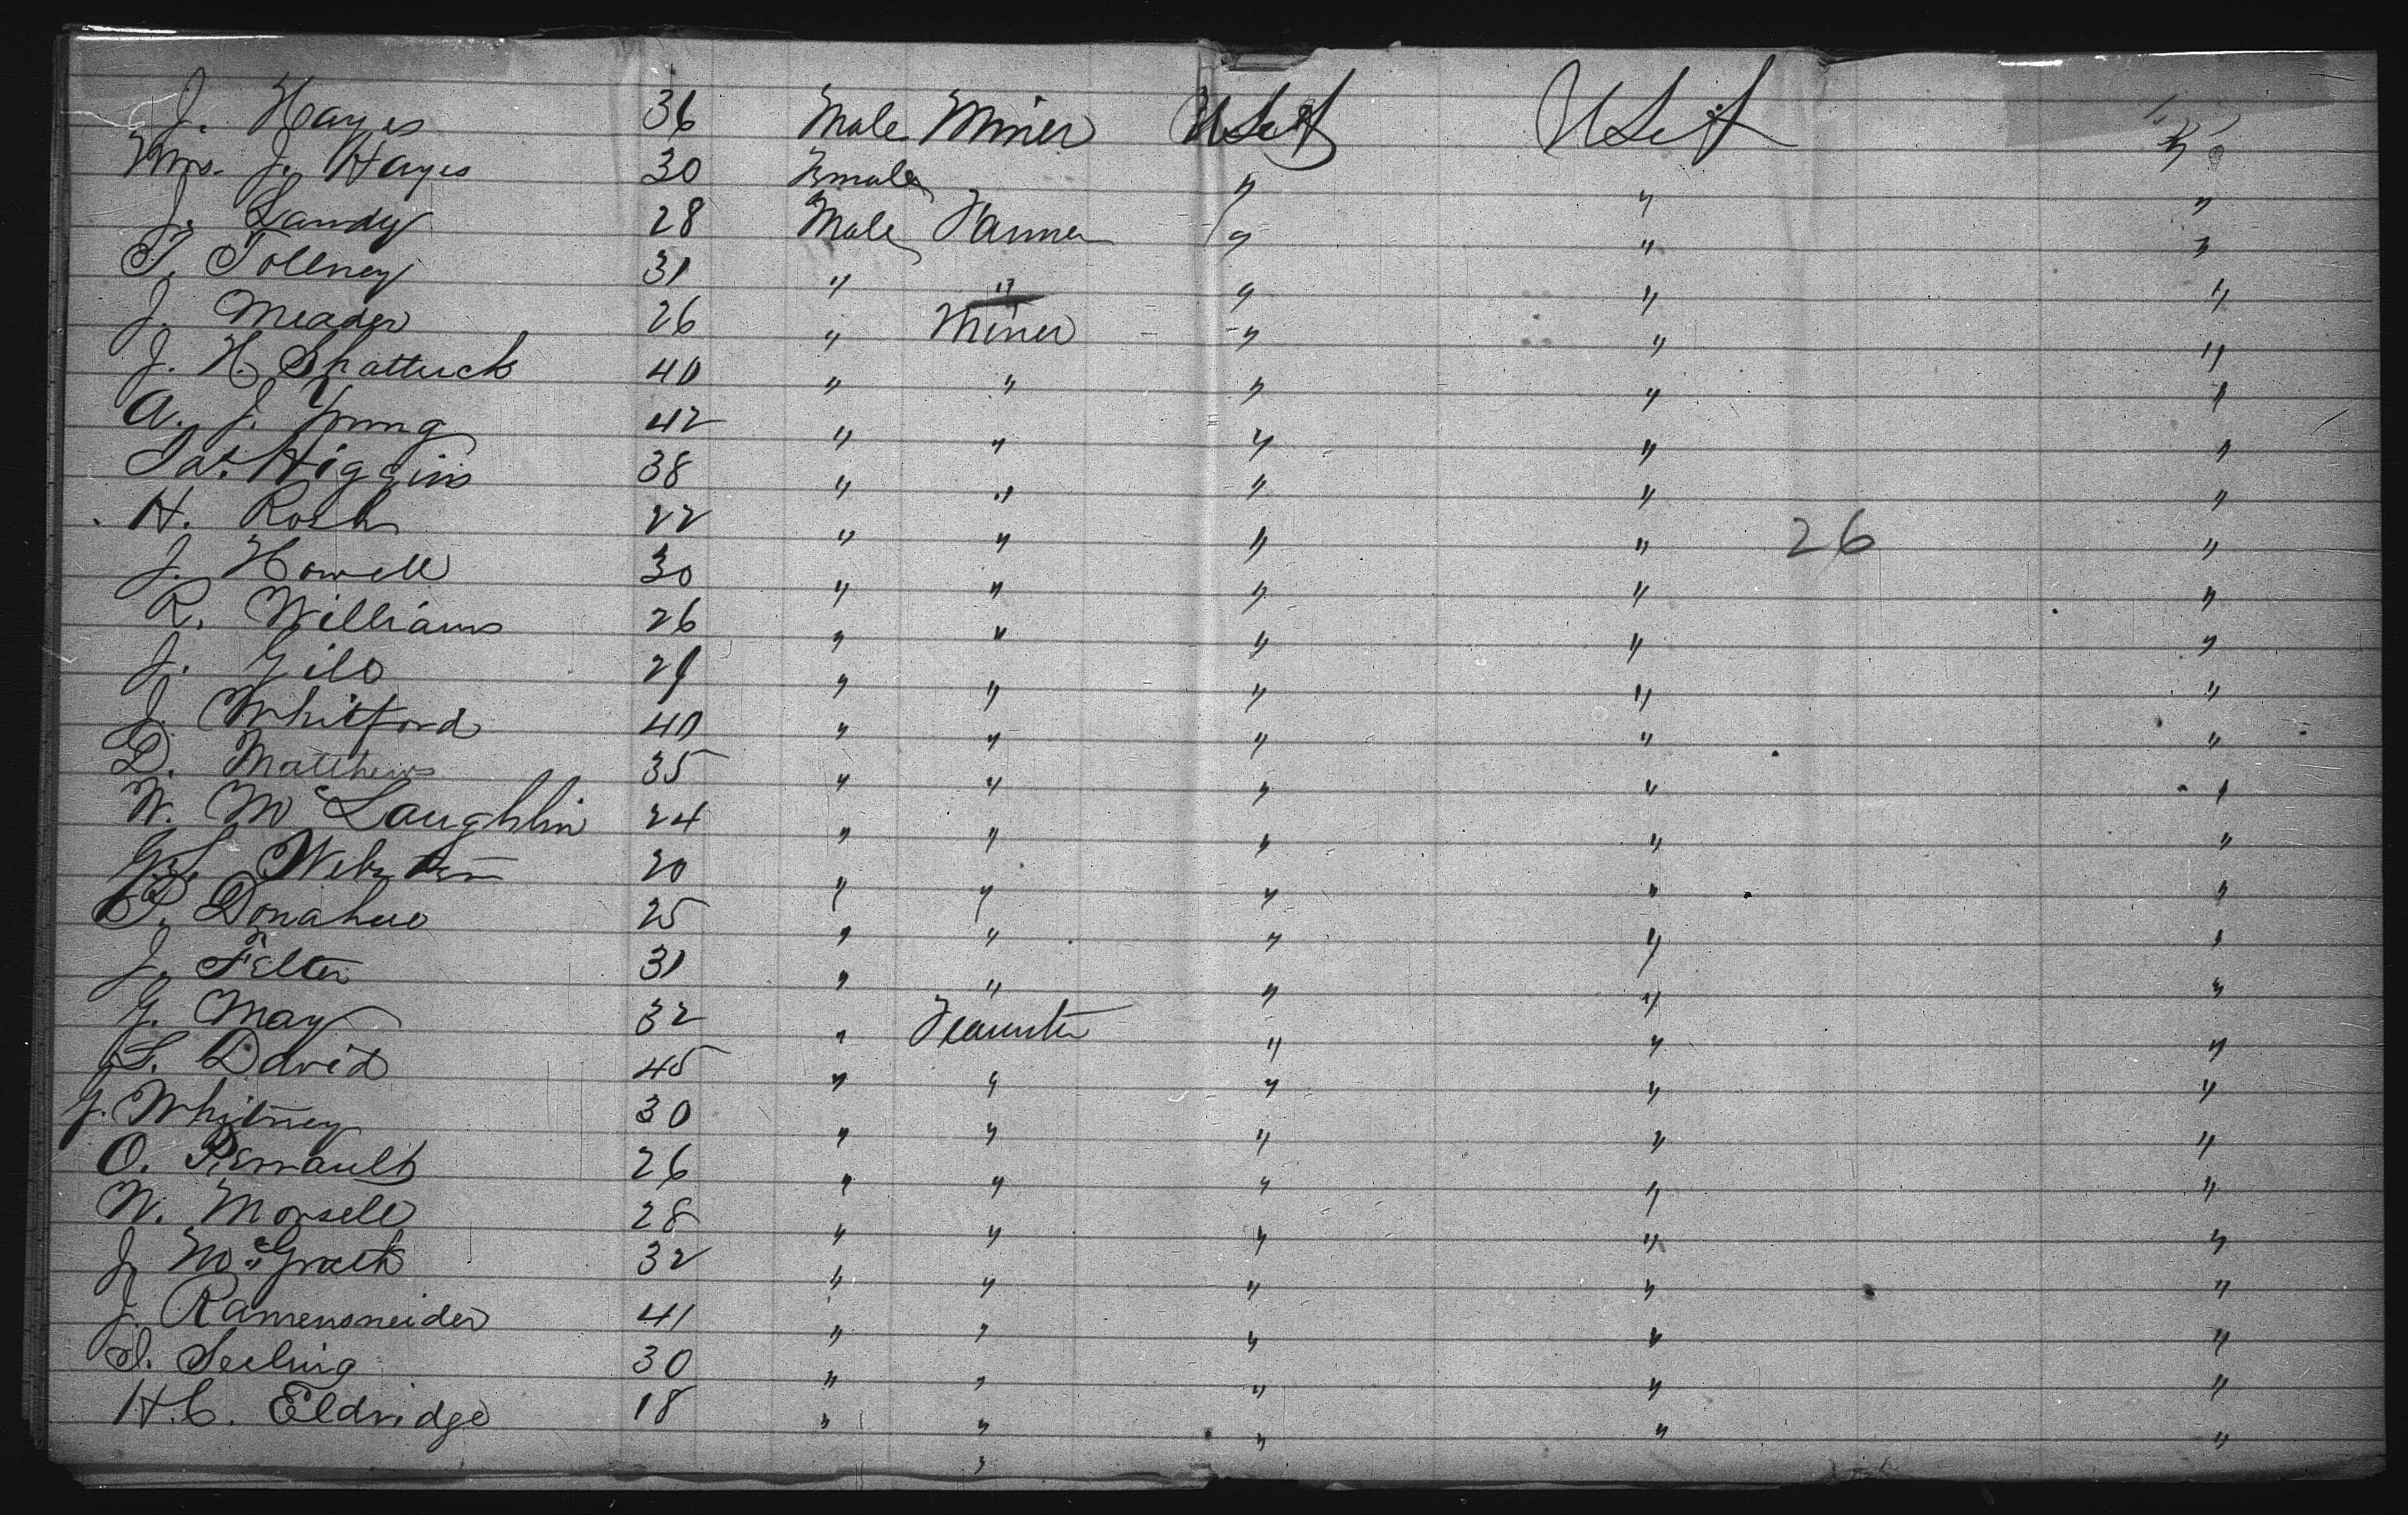 J. Hayes 36 Male Miner U S of A U S of A "
Mrs. J. Hayes 30 Female " " "
J. Landy 28 Male Farmer " " "
T. Tollney 31 " " " " "
J. Meader 26 " Miner " " "
J. H. Shattuck 40 " " " " "
A. J. Young 42 " " " " "
Pat. Higgins 38 " " " " "
H. Rosh 22 " " " " 26 "
J. Howell 30 " " " " "
R. Williams 26 " " " " "
J. Gilo 29 " " " " "
J. Whitford 40 " " " " "
D. Matthews 35 " " " " "
W. McLaughlin 24 " " " " "
Webster 20 " " " " "
P. Donahue 25 " " " " "
J. Felter 31 " " " " "
G. May 32 " Teamster " " "
S. David 45 " " " " "
J. Whitney 30 " " " " "
O. Perrault 26 " " " " "
W. Morsell 28 " " " " "
J. McGrath 32 " " " " "
J. Ramensneider 41 " " " " "
S. Seeling 30 " " " " "
H.C. Eldridge 18 " " " " "
"